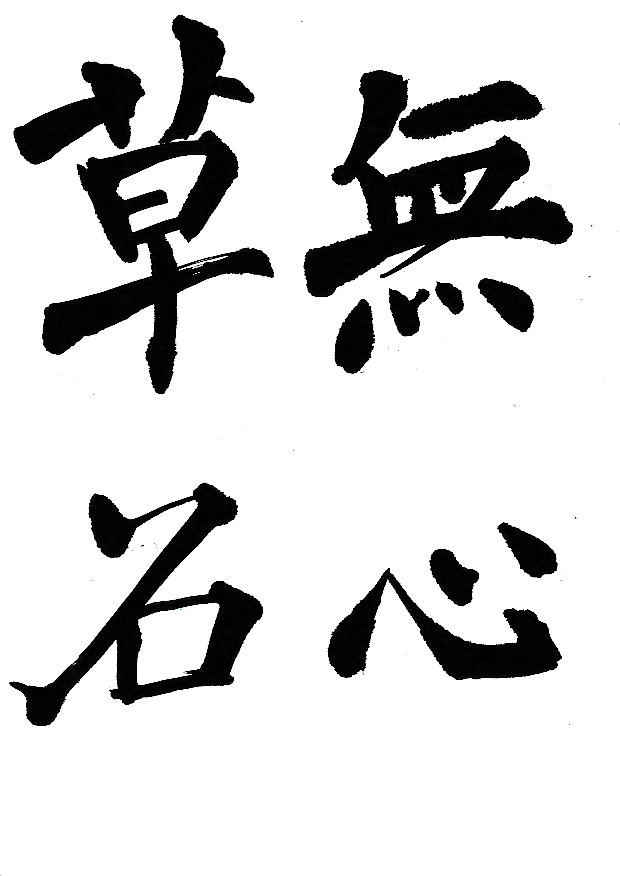 無心
草石